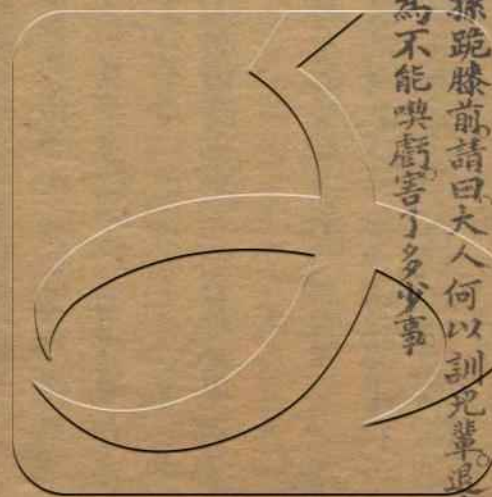 孫跪膝前請曰大人何以訓兒輩退
為不能喫虧害了多少事